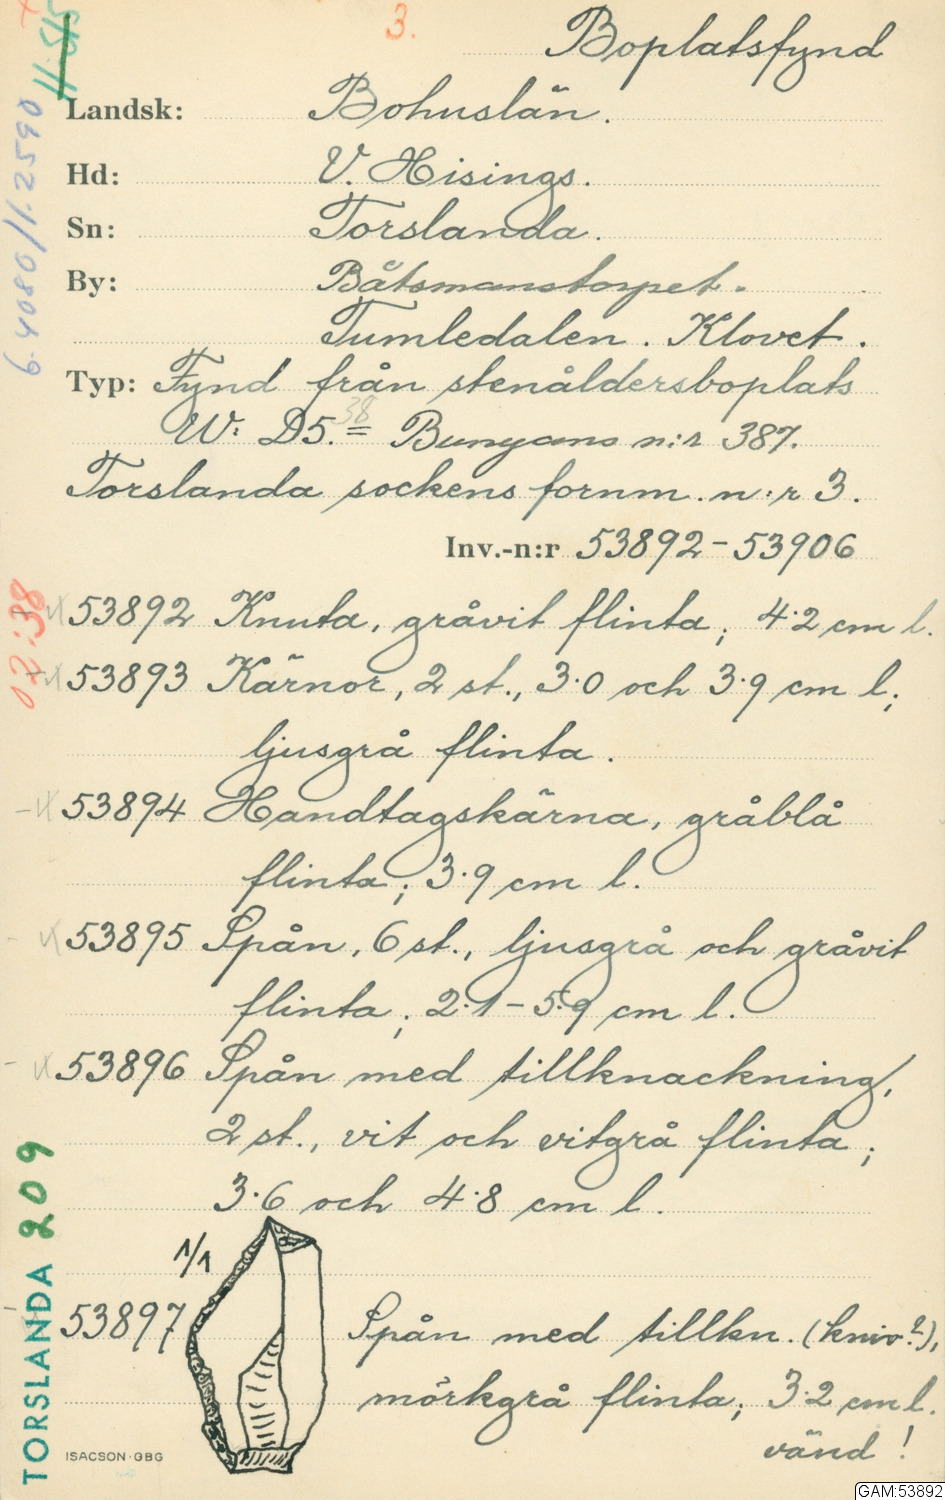 3.
Boplatsfynd
11:515
6.4080/1.2590
Landsk: Bohuslän.
Hd: V. Hisings.
Sn: Torslanda.
By: Båtsmanstorpet.
Tumledalen. Klovet.
Typ: Fynd från stenåldersboplats
38
W: D5. = Bunyans n:r 387.
Torslanda sockens fornm. n:r 3.
Inv.-n:r 53892-53906
02:38
53892 Knuta, gråvit flinta; 4.2 cm l.
53893 Kärnor, 2 st., 3.0 och 3.9 cm l;
ljusgrå flinta.
53894 Handtagskärna, gråblå
flinta; 3.9 cm l.
53895 Spån, 6 st., ljusgrå och gråvit
flinta; 2.1-5.9 cm l.
53896 Spån med tillknackning,
2 st., vit och vitgrå flinta;
3.6 och 4.8 cm l.
1/1
53897 Spån med tillkn. (kniv?),
mörkgrå flinta; 3.2 cm l.
vänd!
TORSLANDA 209
ISACSON·GBG
GAM:53892